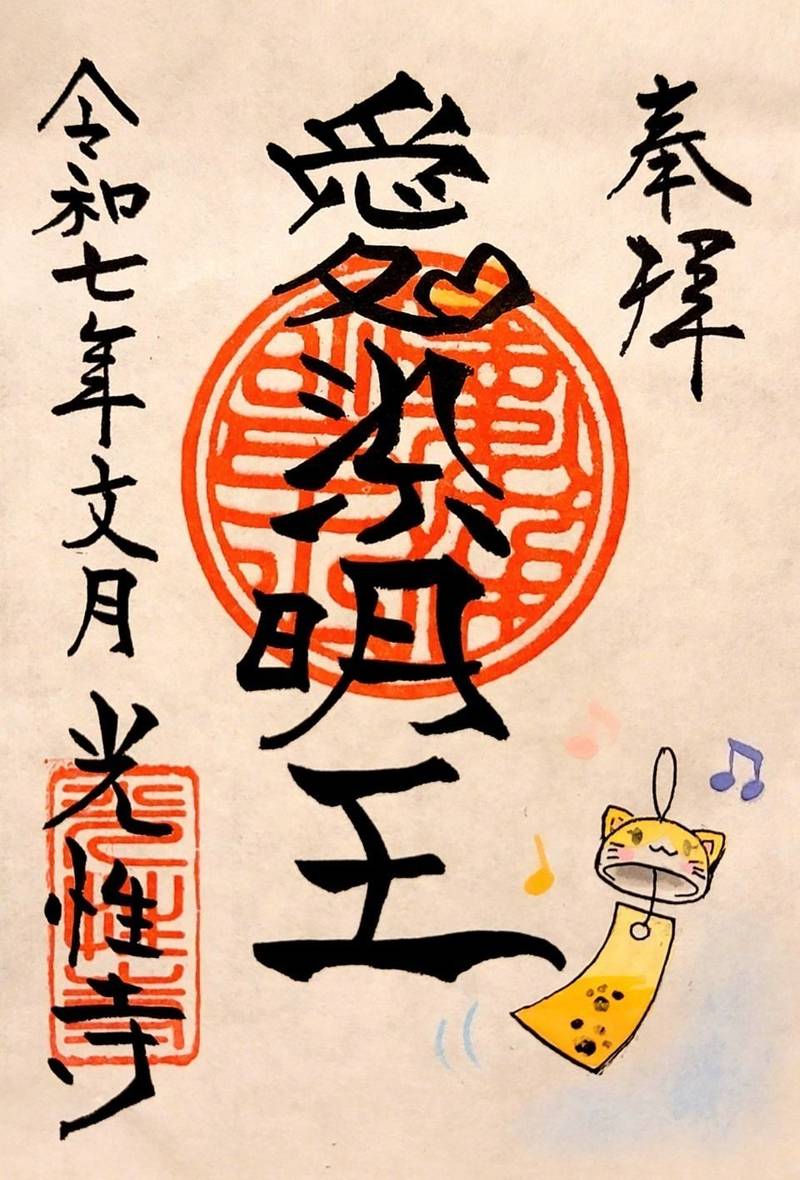 奉拝
愛染明王
令和七年文月 光性寺